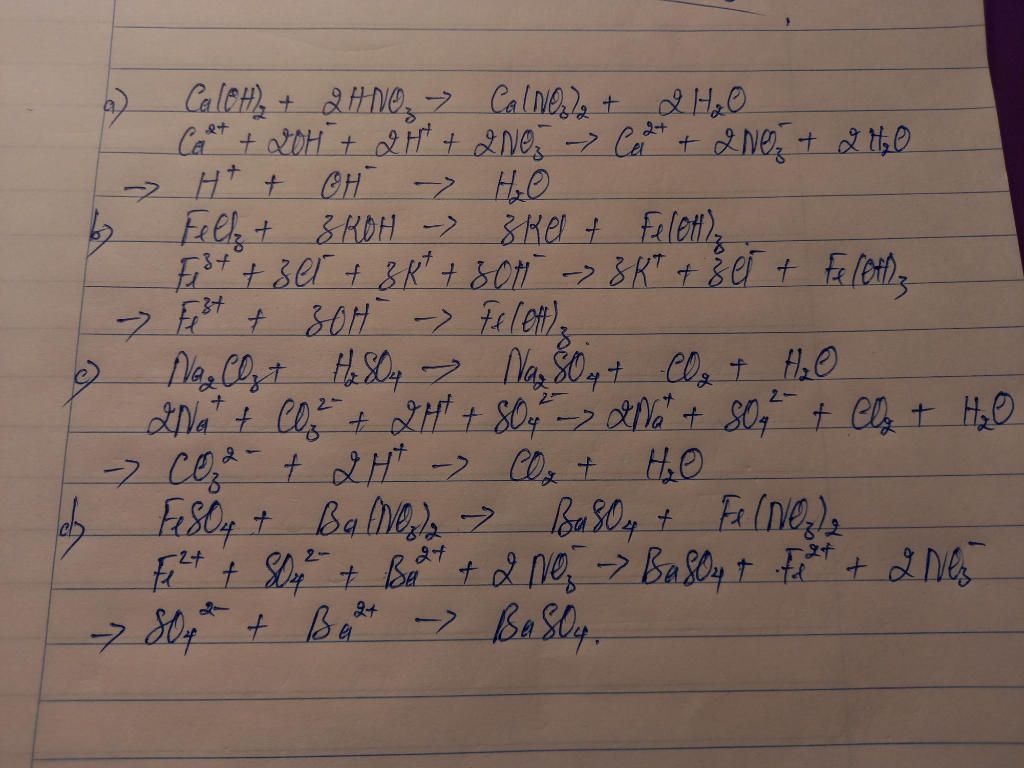 a) Ca(OH)₂ + 2HNO₃ → Ca(NO₃)₂ + 2H₂O
Ca²⁺ + 2OH⁻ + 2H⁺ + 2NO₃⁻ → Ca²⁺ + 2NO₃⁻ + 2H₂O
→ H⁺ + OH⁻ → H₂O
b) FeCl₃ + 3KOH → 3KCl + Fe(OH)₃.
Fe³⁺ + 3Cl⁻ + 3K⁺ + 3OH⁻ → 3K⁺ + 3Cl⁻ + Fe(OH)₃
→ Fe³⁺ + 3OH⁻ → Fe(OH)₃.
c) Na₂CO₃ + H₂SO₄ → Na₂SO₄ + CO₂ + H₂O
2Na⁺ + CO₃²⁻ + 2H⁺ + SO₄²⁻ → 2Na⁺ + SO₄²⁻ + CO₂ + H₂O
→ CO₃²⁻ + 2H⁺ → CO₂ + H₂O
d) FeSO₄ + Ba(NO₃)₂ → BaSO₄ + Fe(NO₃)₂
Fe²⁺ + SO₄²⁻ + Ba²⁺ + 2NO₃⁻ → BaSO₄ + Fe²⁺ + 2NO₃⁻
→ SO₄²⁻ + Ba²⁺ → BaSO₄.